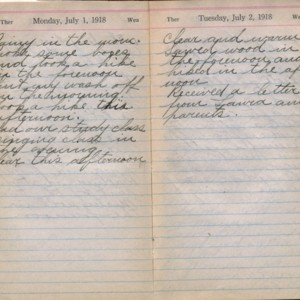 Ther Monday, July 1, 1918 Wea
Rainy in the morn.
some
and took a hike
in the forenoon
my wash off
in the morning.
Took a hike this
afternoon.
Had our study class
singing class in
the evening
this afternoon
Ther Tuesday, July 2, 1918 Wea
Clear and warm
Sawed wood in
the forenoon and
hiked in the after
noon
Received a letter
from and
parents.